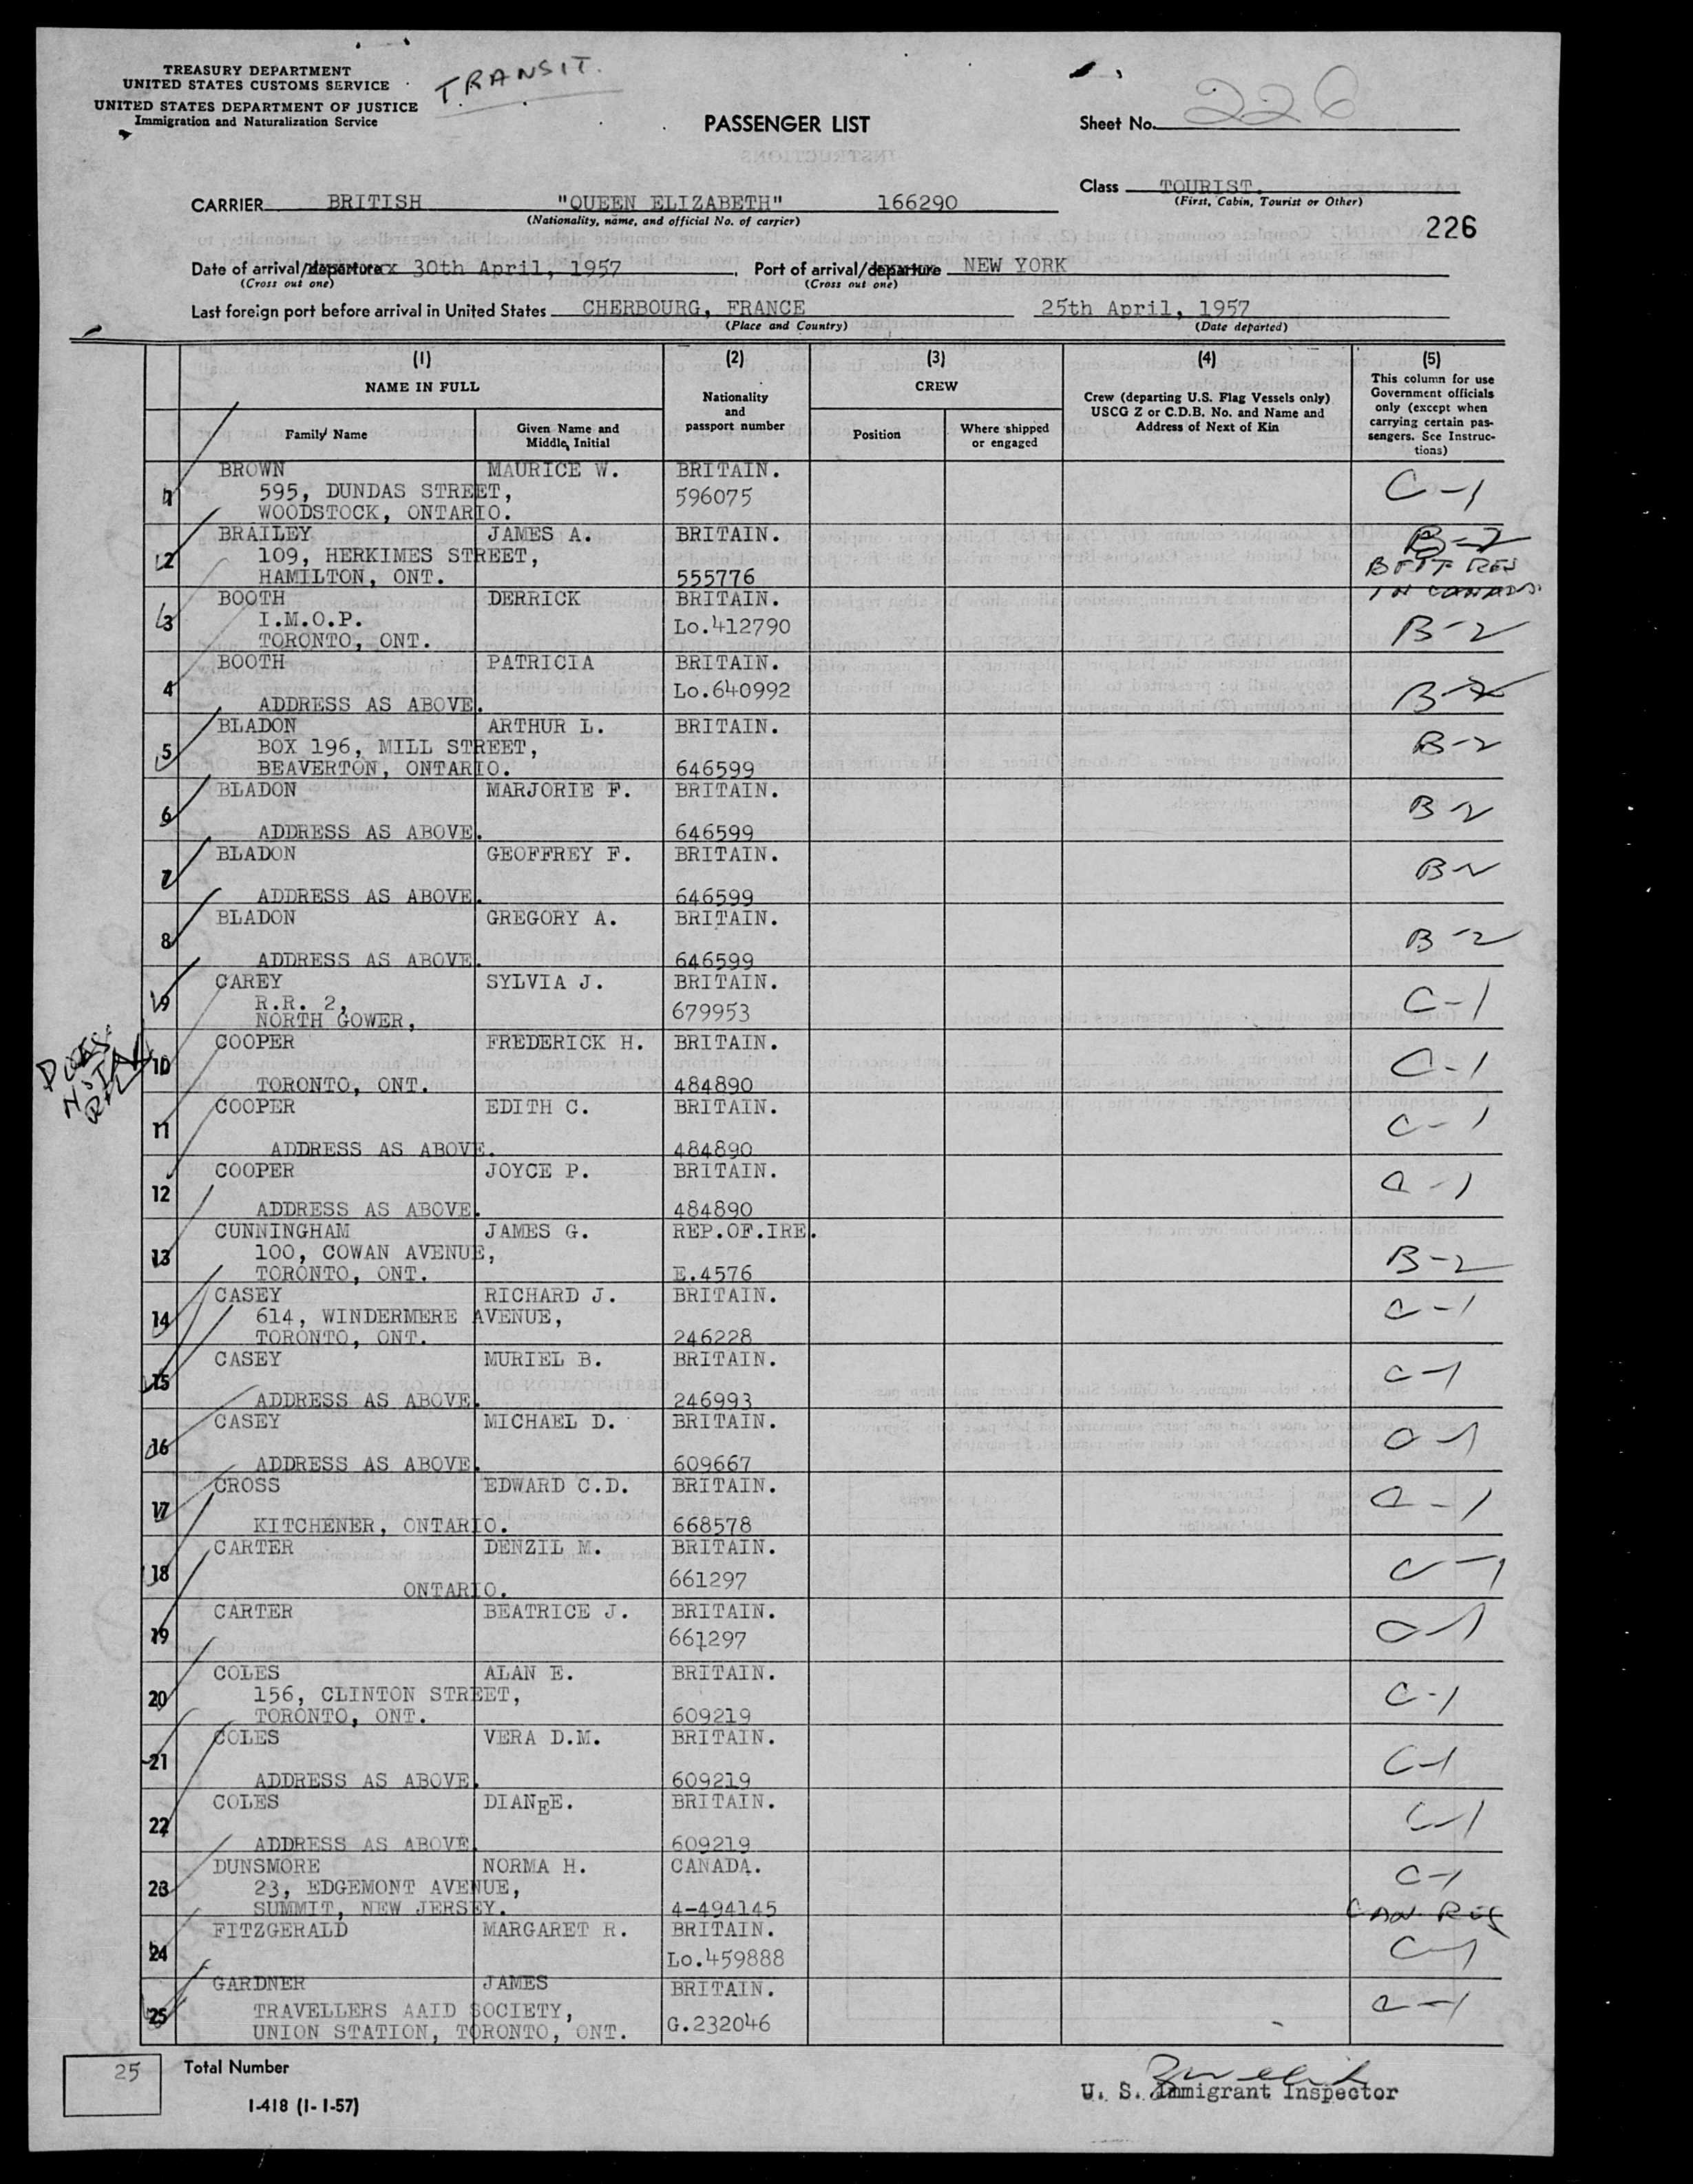 TREASURY DEPARTMENT
UNITED STATES CUSTOMS SERVICE
UNITED STATES DEPARTMENT OF JUSTICE
Immigration and Naturalization Service
TRANSIT.
PASSENGER LIST
Sheet No. 226
Class TOURIST.
(First, Cabin, Tourist or Other)
CARRIER BRITISH "QUEEN ELIZABETH" 166290
(Nationality, name, and official No. of carrier)
226
Date of arrival/departure 30th April, 1957. Port of arrival/departure NEW YORK
(Cross out one) (Cross out one)
Last foreign port before arrival in United States CHERBOURG, FRANCE 25th April, 1957
(Place and Country) (Date departed)
(1) (2) (3) (4) (5)
NAME IN FULL
Family Name
Given Name and Middle, Initial
Nationality and passport number
CREW
Position
Where shipped or engaged
Crew (departing U.S. Flag Vessels only) USCG Z or C.D.B. No. and Name and Address of Next of Kin
This column for use Government officials only (except when carrying certain passengers. See Instructions)
1 BROWN MAURICE W. BRITAIN. C-1
595, DUNDAS STREET, 596075
WOODSTOCK, ONTARIO.
2 BRAILEY JAMES A. BRITAIN. B-2
109, HERKIMES STREET,
HAMILTON, ONT. 555776
RES
IN CANADA
3 BOOTH DERRICK BRITAIN.
I.M.O.P. Lo.412790 B-2
TORONTO, ONT.
4 BOOTH PATRICIA BRITAIN.
Lo.640992 B-2
ADDRESS AS ABOVE.
5 BLADON ARTHUR L. BRITAIN. B-2
BOX 196, MILL STREET,
BEAVERTON, ONTARIO. 646599
6 BLADON MARJORIE F. BRITAIN. B-2
ADDRESS AS ABOVE. 646599
7 BLADON GEOFFREY F. BRITAIN. B-2
ADDRESS AS ABOVE. 646599
8 BLADON GREGORY A. BRITAIN. B-2
ADDRESS AS ABOVE. 646599
9 CAREY SYLVIA J. BRITAIN. C-1
R.R. 2, 679953
NORTH GOWER,
DOES NOT
10 COOPER FREDERICK H. BRITAIN. C-1
TORONTO, ONT. 484890
11 COOPER EDITH C. BRITAIN. C-1
ADDRESS AS ABOVE. 484890
12 COOPER JOYCE P. BRITAIN. C-1
ADDRESS AS ABOVE. 484890
13 CUNNINGHAM JAMES G. REP.OF.IRE. B-2
100, COWAN AVENUE,
TORONTO, ONT. E.4576
14 CASEY RICHARD J. BRITAIN. C-1
614, WINDERMERE AVENUE,
TORONTO, ONT. 246228
15 CASEY MURIEL B. BRITAIN. C-1
ADDRESS AS ABOVE. 246993
16 CASEY MICHAEL D. BRITAIN. C-1
ADDRESS AS ABOVE. 609667
17 CROSS EDWARD C.D. BRITAIN. C-1
KITCHENER, ONTARIO. 668578
18 CARTER DENZIL M. BRITAIN. C-1
661297
ONTARIO.
19 CARTER BEATRICE J. BRITAIN. C-1
661297
20 COLES ALAN E. BRITAIN. C-1
156, CLINTON STREET,
TORONTO, ONT. 609219
21 COLES VERA D.M. BRITAIN. C-1
ADDRESS AS ABOVE. 609219
22 COLES DIANEE. BRITAIN. C-1
ADDRESS AS ABOVE. 609219
23 DUNSMORE NORMA H. CANADA. C-1
23, EDGEMONT AVENUE,
SUMMIT, NEW JERSEY. 4-494145 CAN RES
24 FITZGERALD MARGARET R. BRITAIN. C-1
Lo.459888
25 GARDNER JAMES BRITAIN. C-1
TRAVELLERS AAID SOCIETY, G.232046
UNION STATION, TORONTO, ONT.
25 Total Number
I-418 (1-1-57)
U. S. Immigrant Inspector